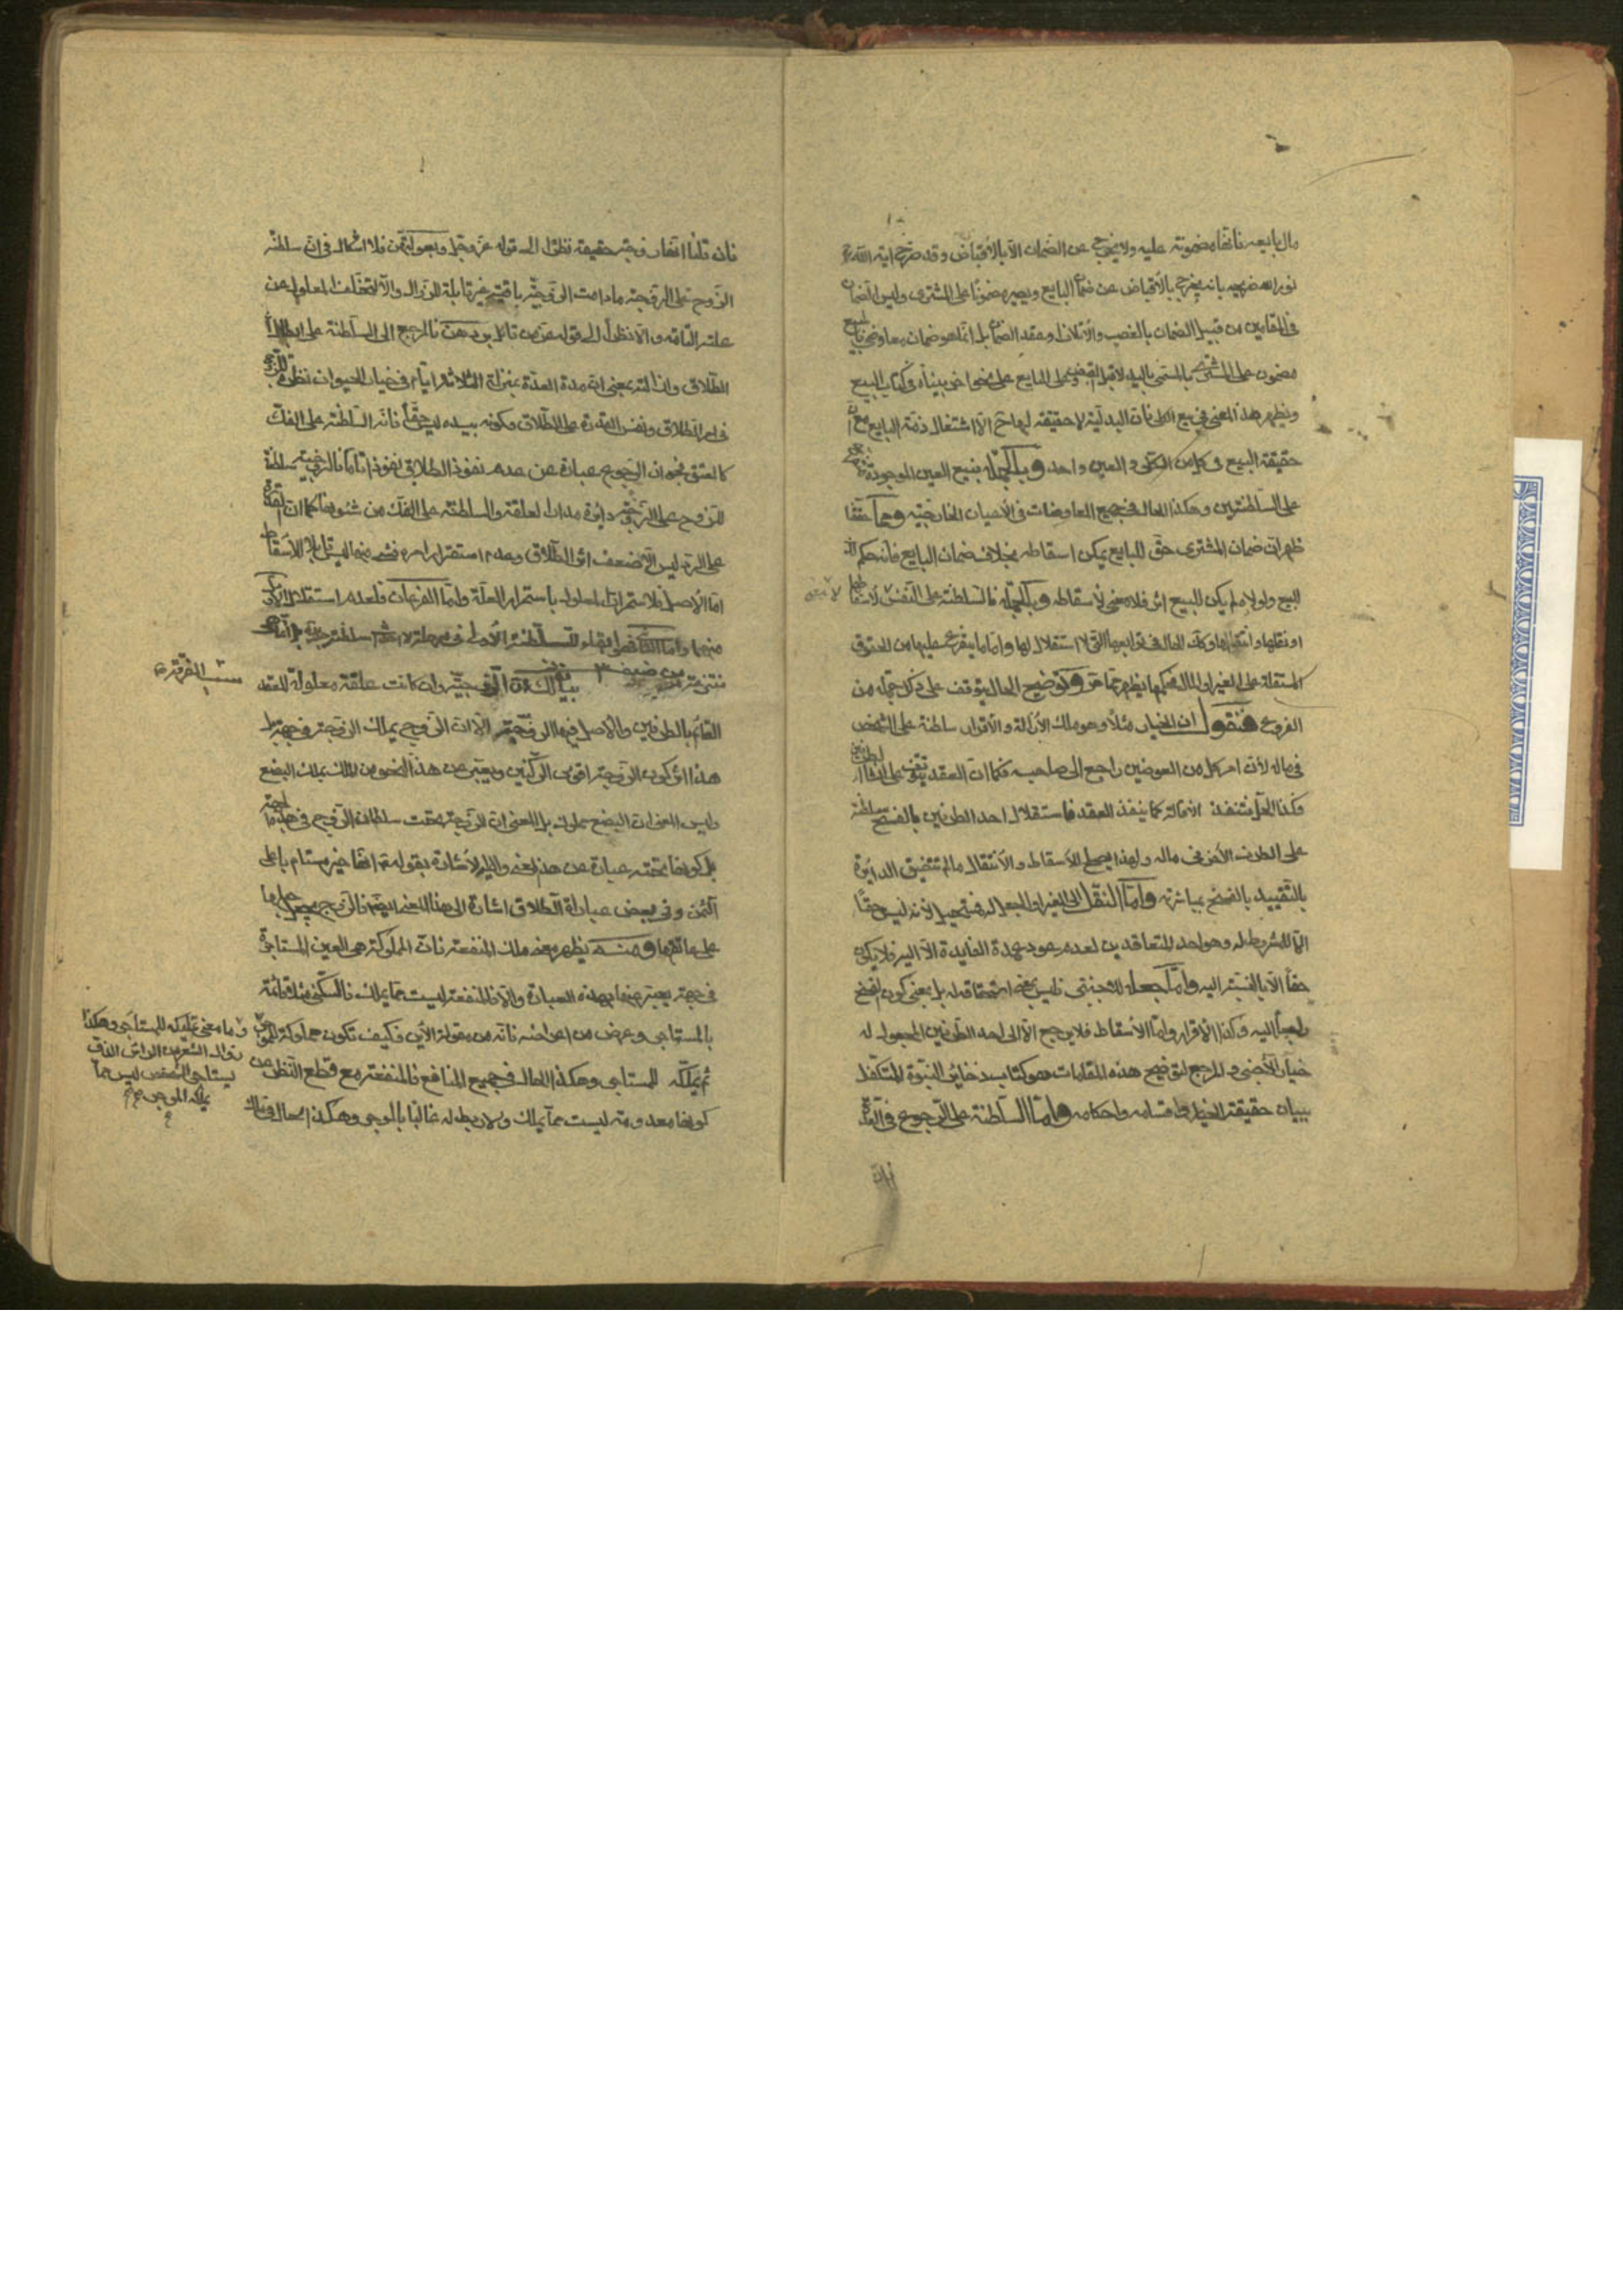 مال بايعه فانها مضمونة عليه ولا يخرج عن الضمان الا بالاقباض وقد صرح اية الله
نور الله ضريحه بانه يخرج بالاقباض عن ضمان البايع ويصير مضمونا على المشتري وليس الضمان
في المقامين من قبيل الضمان بالغصب والاتلاف وعقد الضمان بل انما هو ضمان معاوضي
مضمون على المشتري بالمسمى باليد لا قبل القبض وعلى البايع على معنى اخر بيناه في كتاب البيع
ويظهر هذا المعنى في بيع الكلى فان البدلية لا حقيقة لها ح الا اشتغال ذمة البايع مع ان
حقيقة البيع في كل من الكلى و العين واحد وبالجملة فبيع العين الموجودة
على السلطنتين وهكذا الحال في جميع المعاوضات في الاعيان الخارجية ومما حققنا
ظهر ان ضمان المشتري حق للبايع يمكن اسقاطه بخلاف ضمان البايع فانه حكم
للبيع ولولاه لم يكن للبيع اثر فلا معنى لاسقاطه وبالجملة فالسلطنة على النفس لا
او نقلها وانتقالها وكذا الحال في توابعها التي لا استقلال لها واما ما يتفرع عليها من الحقوق
المستقلة على الغير او المال فحكمها يظهر مما مر وتوضيح الحال يتوقف على ذكر جملة من
الفروع فنقول ان الخيار مثلا وهو ملك الازالة والاقرار سلطنة على الشخص
في ماله لان امر كل من العوضين راجع الى صاحبه فكما ان العقد يتوقف على
فكذا الحل فتنفذ الاقالة كما ينفذ العقد فاستقلال احد الطرفين بالفسخ سلطنة
على الطرف الاخر في ماله ولهذا يصلح للاسقاط والانتقال ما لم تتضيق الدايرة
بالتقييد بالفسخ بمباشرته واما النقل الى الغير او الجعل له فمستحيل لانه ليس حقا
الا للمشروط له وهو احد المتعاقدين لعدم عود عمدة الفايدة الا اليه فلا يكون
حقا الا بالنسبة اليه واما جعله للاجنبي فليس بمعنى استحقاقه له بل بمعنى كون الفسخ
راجعا اليه وكذا الاقرار واما الاسقاط فلا يرجع الا الى احد الطرفين المجعول له
خيار الاجنبي و المرجع لتوضيح هذه المقامات هو كتابيد ذخاير النبوة المتكفل
ببيان حقيقة الخيار واقسامه واحكامه واما السلطنة على الرجوع في العدة
فان قلنا انها زوجة حقيقة نظرا الى قوله عز وجل وبعولتهن فلا اشكال في ان سلطنة
الزوج على الزوجة ما دامت الزوجية باقية غير قابلة للزوال والا لتخلف المعلول عن
علته التامة والا نظرا الى قوله عز من قائل بردهن فالمرجع الى السلطنة على ابطال
الطلاق وازالته بمعنى ان مدة العدة بمنزلة الثلاثة ايام في خيار الحيوان نظرة للزوج
في امر الطلاق ونفس القدرة على الطلاق وكونه بيده ليس حقا فانه السلطنة على الفك
كالعتق فجواز الرجوع عبارة عن عدم نفوذ الطلاق نفوذا تاما فالزوجية سلطنة
للزوج على الزوجة دايرة مدار العلقة والسلطنة على الفك من شئونها كما ان القدرة
على الرد ليس الا ضعف اثر الطلاق وعدم استقرار امره فشيء منهما ليس قابلا للاسقاط
اما الاصل فلاستمرار المعلول باستمرار العلة واما الفرعان فلعدم استقلال
بيان ذلك ان الزوجية وان كانت علقة معلولة للعقد
القائم بالطرفين والاصل فيها الزوجة الا ان الزوج يملك الزوجة في جهة
هذا اثر كون الزوجة اقوى الركنين ويعبر عن هذا النحو من الملك بملك البضع
وليس المعنى ان البضع مملوك بل المعنى ان الزوجة تحت سلطان الزوج في هذه الجهة
بل كونها تحته عبارة عن هذا المعنى واليه الاشارة بقوله ع انها خير مستام باعلى
الثمن وفي بعض عبارات الطلاق اشارة الى هذا المعنى ايضا فالزوج يجعل حبلها
على عاتقها ومنه يظهر معنى ملك المنفعة فان المملوكة هي العين المستاجرة
في جهة يعبر عنها بهذه العبارة والا فالمنفعة ليست مما يملك فالسكنى مثلا قائمة
بالمستاجر وعرض من اعراضه فانه من مقولة الاين فكيف تكون مملوكة للموجر
ثم يملكه للمستاجر وهكذا الحال في جميع المنافع فالمنفعة مع قطع النظر عن
كونها معدومة ليست مما يملك ولا ربط له غالبا بالموجر وهكذا الحال في تلك
وما معنى تمليكه للمستاجر وهكذا
زوال الشعر من الراس الذي
يستاجر الشخص ليس مما
يملكه الموجر